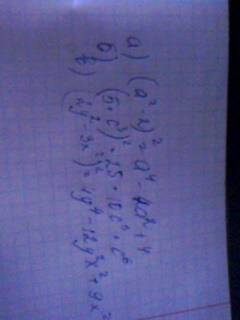 а) (a² - 2)² = a⁴ - 4a² + 4
б) (5 + c³)² = 25 + 10c³ + c⁶
в) (2y² - 3x²)² = 4y⁴ - 12y²x² + 9x²